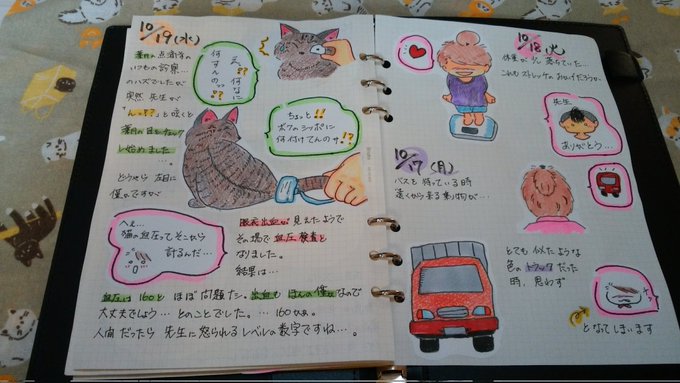 10/19(水)
葉月の点滴等の
いつもの診察…
のハズでしたが
突然 先生が
「ん??」と呟くと
葉月の目をチェック
し始めました
…。
どうやら 左目に
僅かですが
え、!?何なに
何すんのっ!?
ちょっと!!
ボクのシッポに
何付けてんのサ!?
へぇ…
猫の血圧ってそこから
計るんだ…
眼底出血が 見えたようで
その場で血圧検査と
なりました。
結果は…
血圧は160と ほぼ問題ナシ。出血も ほんの僅かなので
大丈夫でしょう… とのことでした。… 160かぁ。
人間だったら 先生に怒られるレベルの数字ですね…。
10/18(火)
体重が 少し 落ちていた…
これもストレッチのおかげだろうか。
先生
ありがとう…
10/17(月)
バスを待っている時
遠くから来る乗り物が…
とても 似たような
色の トラックだった
時、思わず
となってしまいます